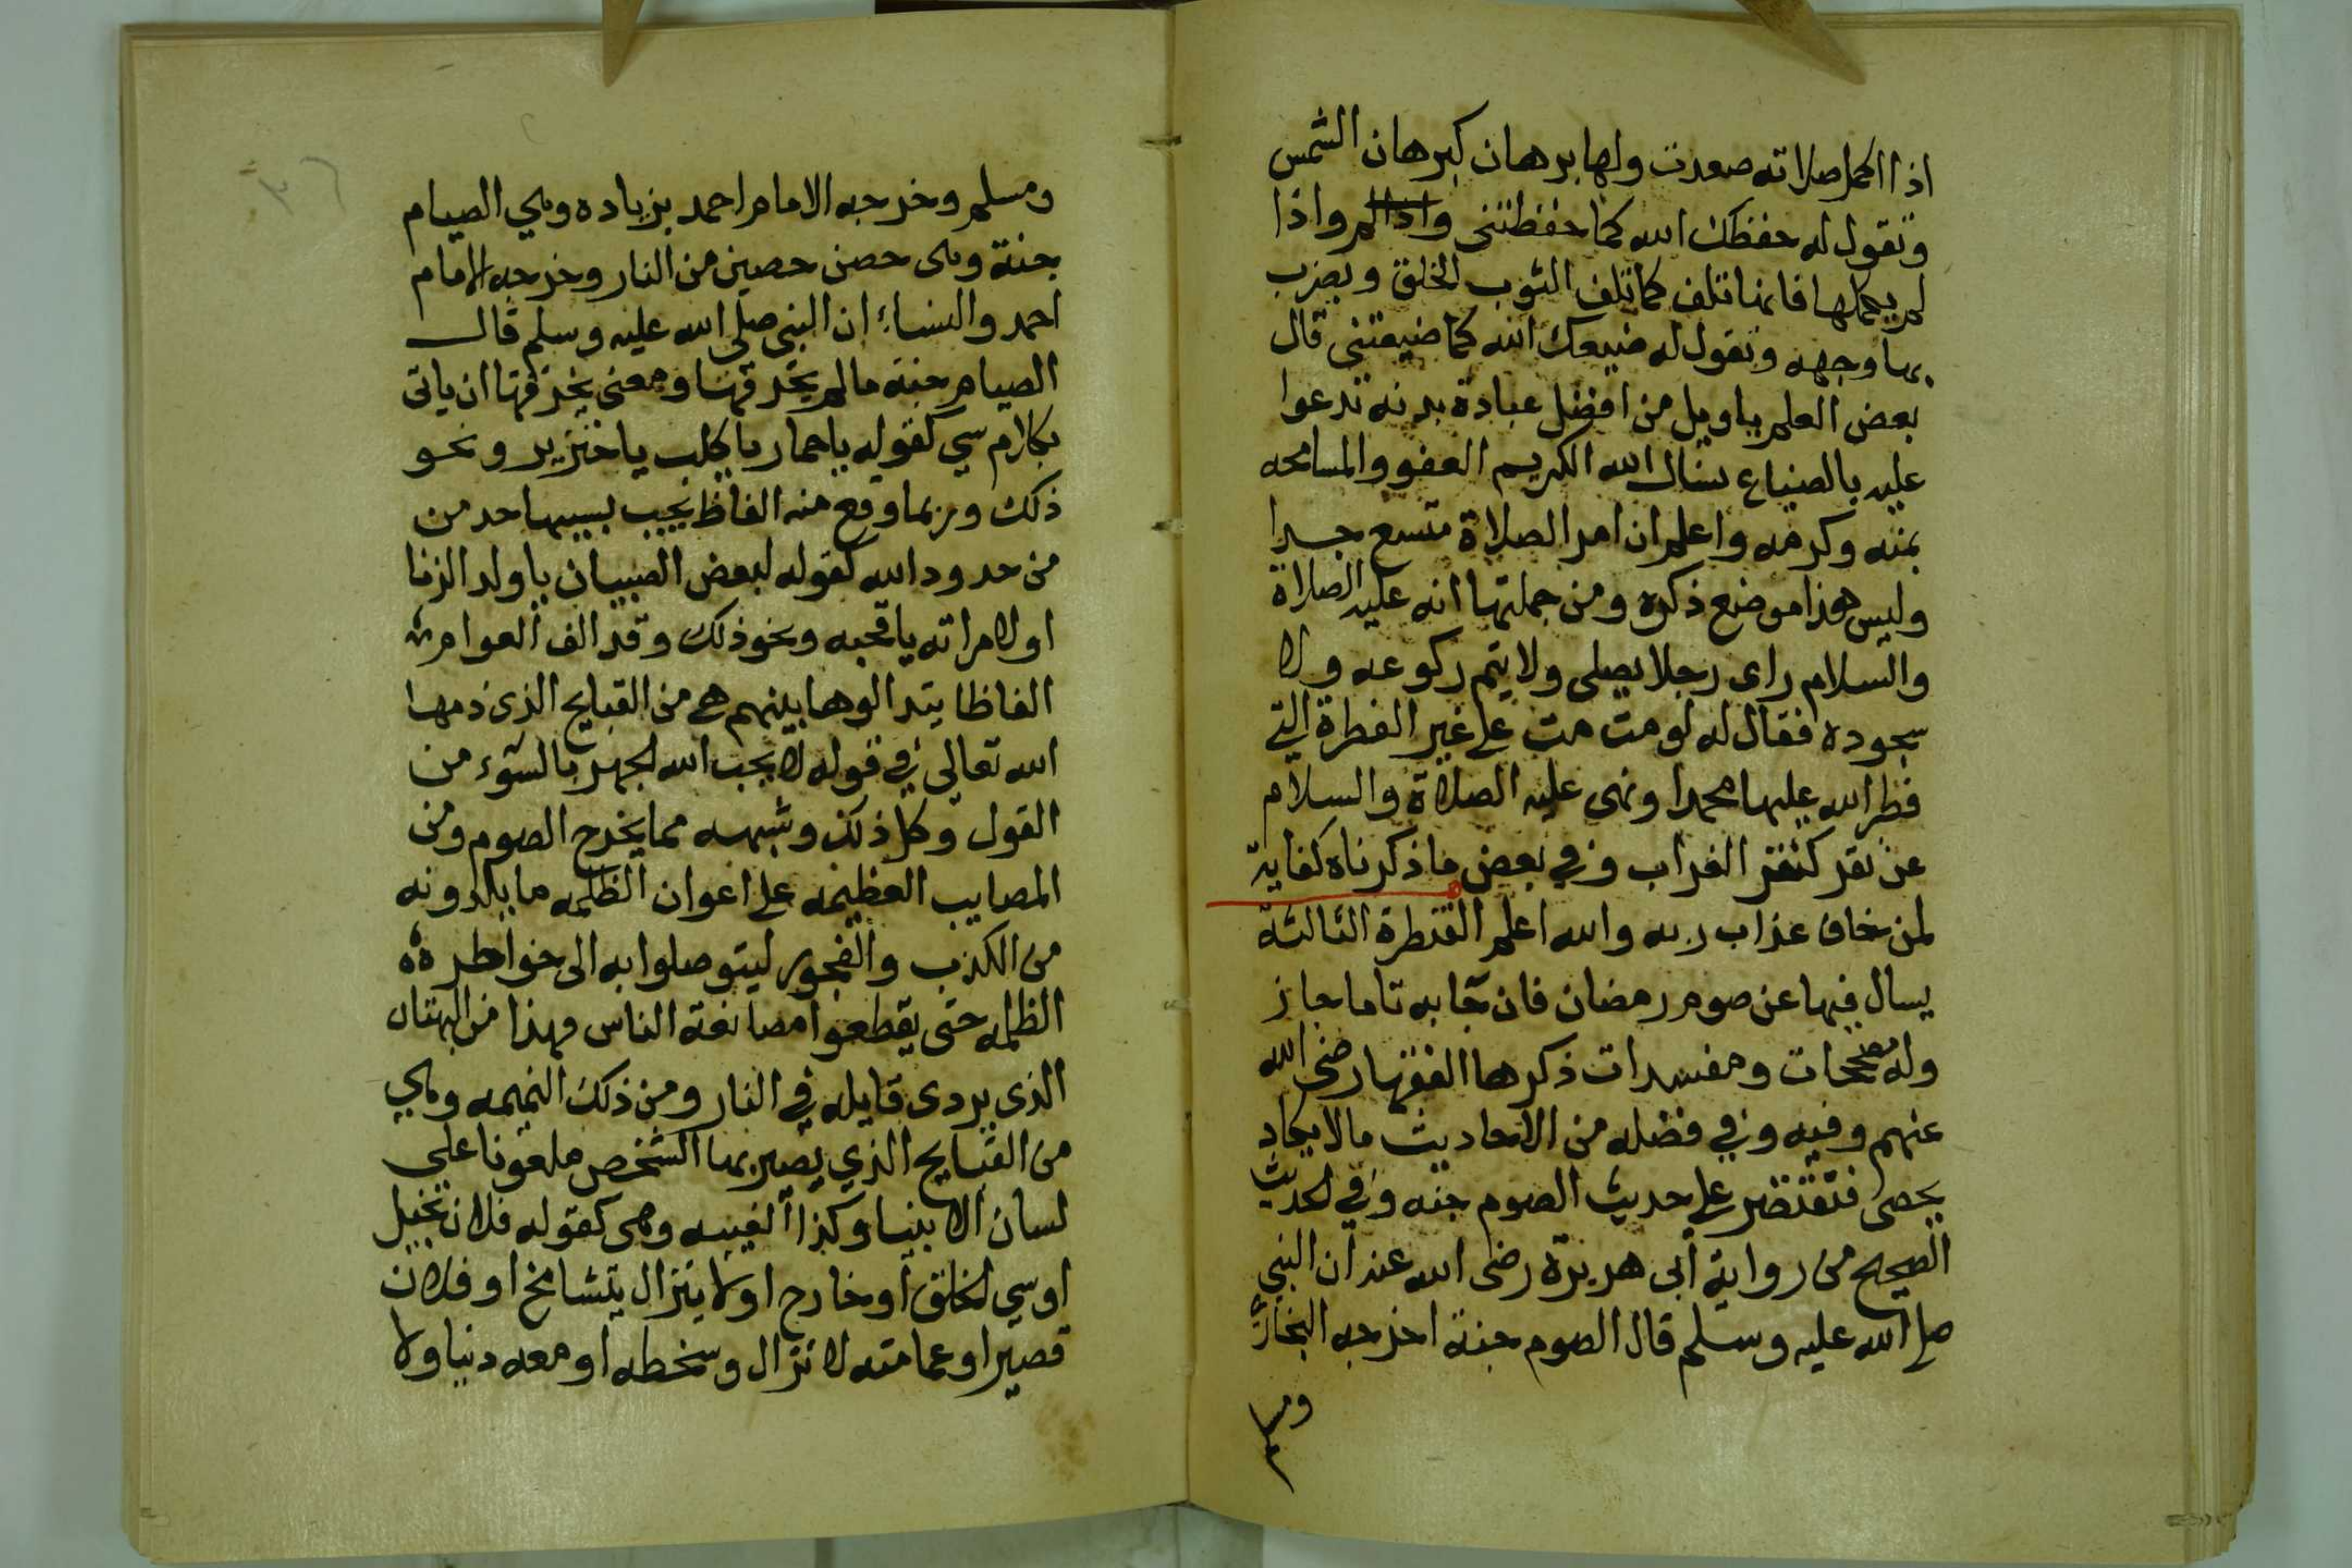 اذا اكمل صلاته صعدت ولها برهان كبرهان الشمس
وتقول له حفظك الله كما حفظتني واذا لم واذا
لم يكملها فانها تلف كما تلف الثوب الخلق ويضرب
بها وجهه وتقول له ضيعك الله كما ضيعتني قال
بعض العلم ياويل من افضل عبادة بدنه تدعوا
عليه بالضياع نسال الله الكريم العفو والمسامحه
بمنه وكرمه واعلم ان امر الصلاة متسع جدا
وليس هذا موضع ذكره ومن جملتها انه عليه الصلاة
والسلام راى رجلا يصلى ولا يتم ركوعه ولا
سجوده فقال له لو مت مت على غير الفطرة التي
فطر الله عليها محمدا ونهى عليه الصلاة والسلام
عن نقر كنقر الغراب وفي بعض ما ذكرناه كفاية
لمن خاف عذاب ربه والله اعلم القنطرة الثالثة
يسال فيها عن صوم رمضان فان جا به تاما جاز
وله مصححات ومفسدات ذكرها الفقها رضى الله
عنهم وفيه وفي فضله من الاحاديث مالا يكاد
يحصى فنقتصر على حديث الصوم جنه وفي الحديث
الصحيح من رواية أبى هريرة رضى الله عنه ان النبي
صلى الله عليه وسلم قال الصوم جنة اخرجه البخارى
ومسلم
ومسلم وخرجه الامام احمد بزياده وهي الصيام
جنة وهى حصن حصين من النار وخرجه الامام
احمد والنساء ان النبى صلى الله عليه وسلم قال
الصيام جنة ما لم يخرقها ومعنى يخرقها ان ياتى
بكلام سي كقوله يا حمار يا كلب يا خنزير ونحو
ذلك وربما وقع منه الفاظ يجب بسببها حد من
من حدود الله كقوله لبعض الصبيان يا ولد الزنا
او لامراته يا قحبه ونحو ذلك وقد الف العوام
الفاظا يتدالوها بينهم هي من القبايح الذى ذمها
الله تعالى في قوله لا يحب الله الجهر بالسوء من
القول وكل ذلك وشبهه مما يخرج الصوم ومن
المصايب العظيمه على اعوان الظلمه ما يبلدونه
من الكذب والفجور ليتوصلوا به الى خواطر
الظلمه حتى يقطعوا مصانعة الناس وهذا من البهتان
الذى يردى قايله في النار ومن ذلك النميمه وهي
من القبايح الذي يصير بها الشخص ملعونا على
لسان الانبيا وكذا الغيبه وهى كقوله فلان بخيل
او سي الخلق او خارج او لا يزال يتشامخ او فلان
قصير او عمامته لا تزال وسخطه او معه دنيا ولا